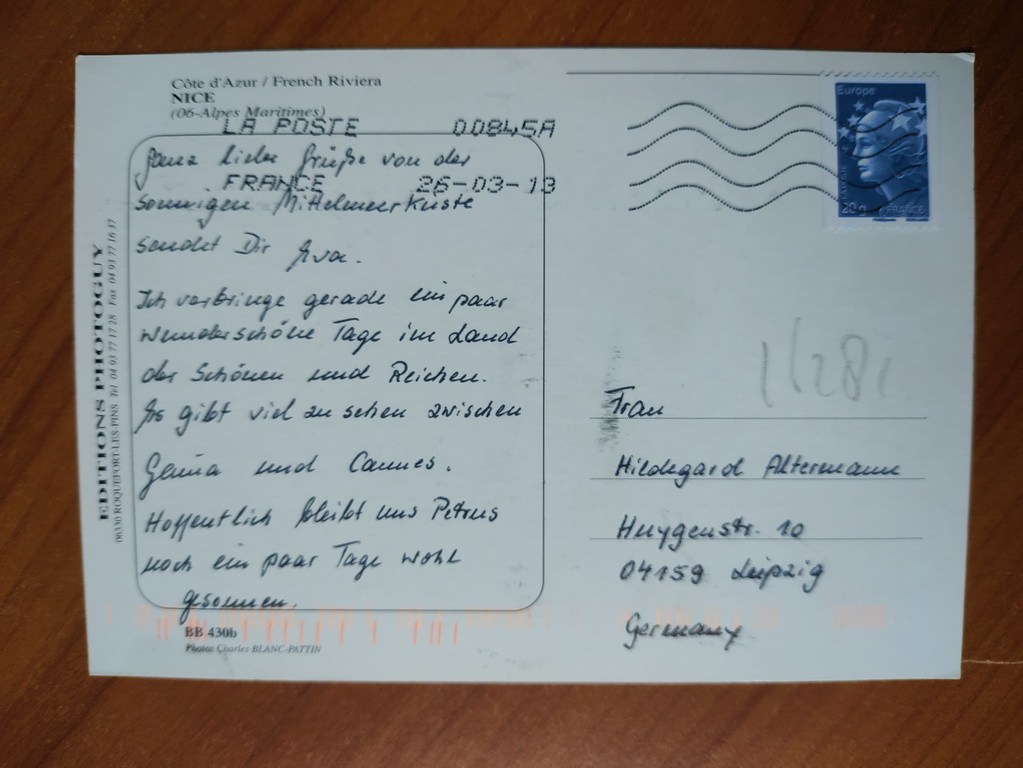 Côte d'Azur / French Riviera
NICE
(06-Alpes Maritimes)
LA POSTE 00845A
FRANCE 26-03-13
Ganz liebe Grüße von der
sonnigen Mittelmeerküste
sendet Dir Eva.
Ich verbringe gerade ein paar
wunderschöne Tage im Land
der Schönen und Reichen.
Es gibt viel zu sehen zwischen
Genua und Cannes.
Hoffentlich bleibt uns Petrus
noch ein paar Tage wohl
gesonnen.
BB 430b
Photos Charles BLANC-PATTIN
EDITIONS PHOTOGUY
06330 ROQUEFORT-LES-PINS Tél 04 93 77 17 28 Fax 04 93 77 16 37
Europe
20g FRANCE
Frau
Hildegard Altermann
Huygenstr. 10
04159 Leipzig
Germany